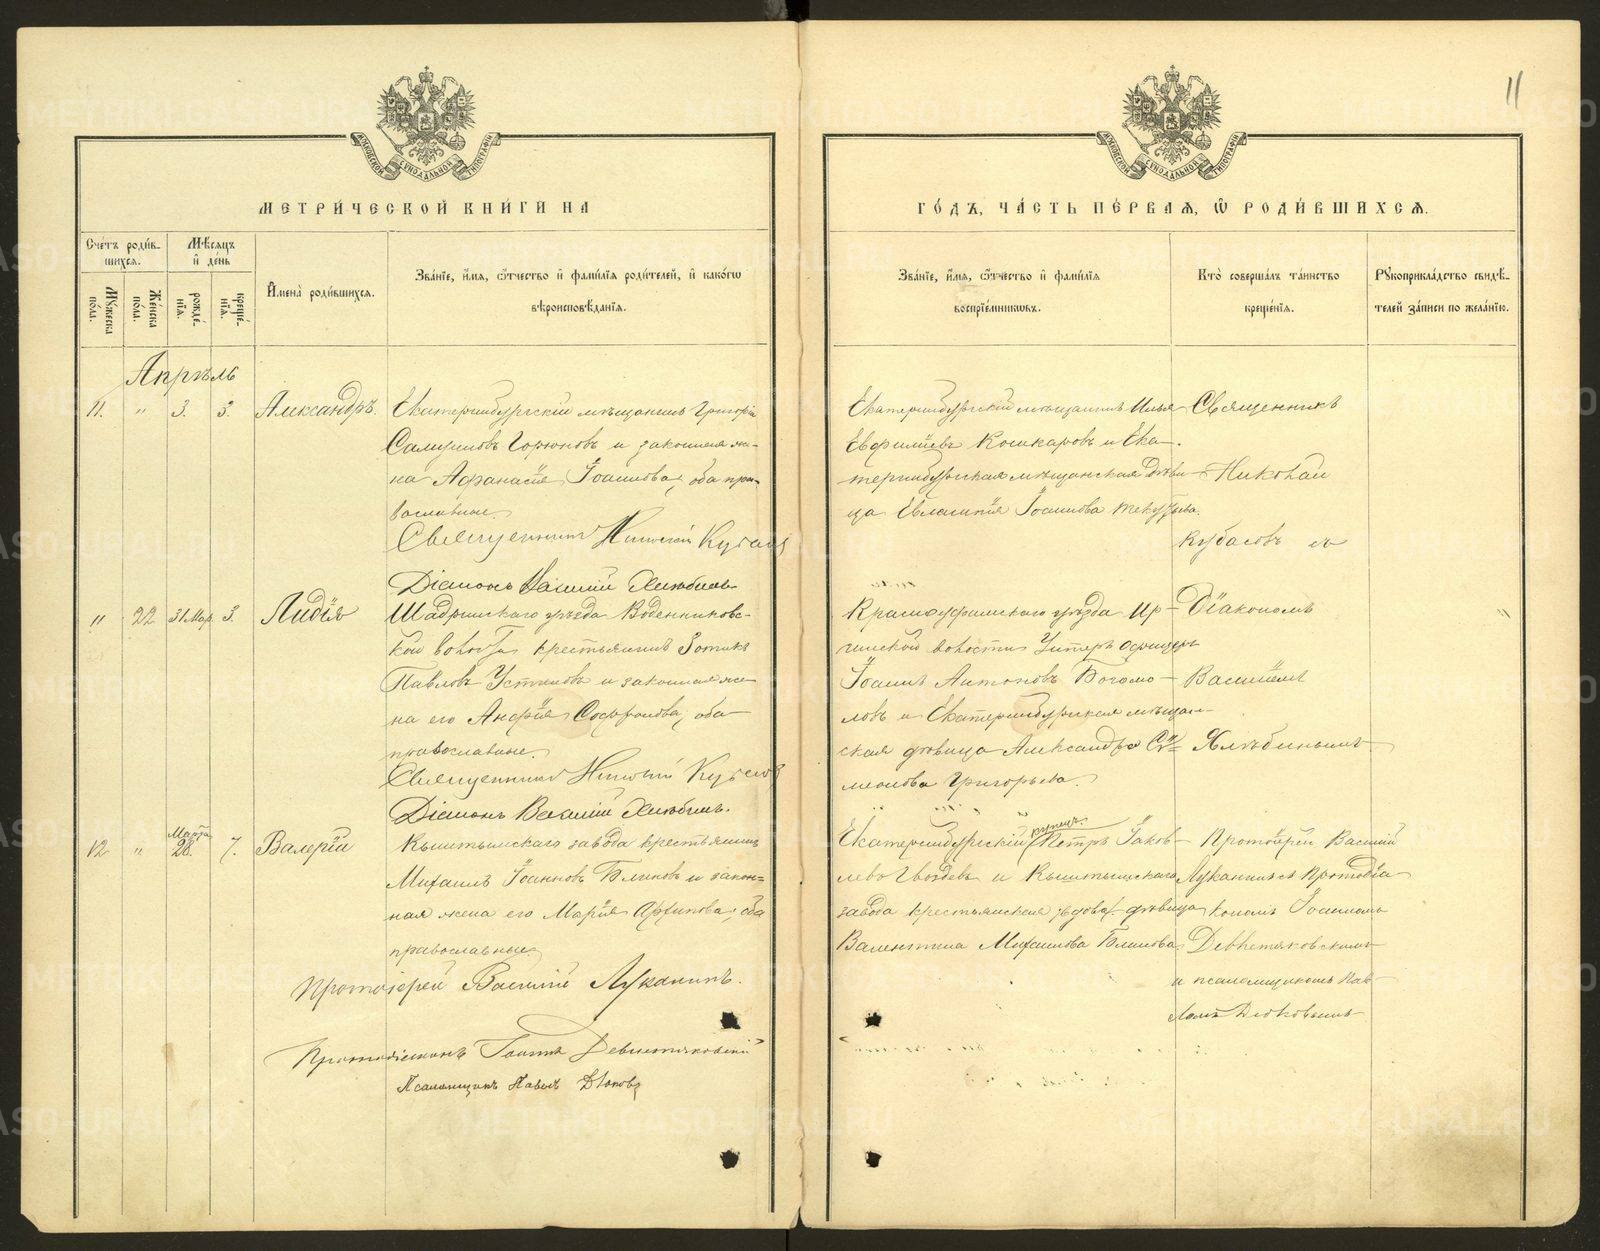 11
МОСКОВСКОЙ СѴНОДАЛЬНОЙ ТИПОГРАФІИ
МОСКОВСКОЙ СѴНОДАЛЬНОЙ ТИПОГРАФІИ
МЕТРИ́ЧЕСКОЙ КНИ́ГИ НА
ГО́ДЪ, ЧА́СТЬ ПЕ́РВАЯ, Ѡ РОДИ́ВШИХСЯ.
Сче́тъ роди́в-
шихся.
Му́жеска по́ла.
Же́нска пола.
Мѣ́сяцъ
и҆ де́нь
рожде́-нїя.
креще́-нїя.
И҆мена̀ роди́вшихся.
Зва́нїе, и҆́мя, ѻ҆́тчество и҆ фами́лїя роди́телей, и҆ како́гѡ
вѣроисповѣ́данїя.
Зва́нїе, и҆́мя, ѻ҆́тчество и҆ фами́лїя
воспрїе́мникѡвъ.
Кто̀ соверша́лъ та́инство
креще́нїя.
Рꙋкоприкла́дство свидѣ́-
телей за́писи по жела́нїю.
Апрѣль
11. " 3. 3. Александръ.
Екатеринбургскій мѣщанинъ Григорій
Самуиловъ Горюновъ и законная же-
на Афанасія Іоаннова, оба пра-
вославные.
Священникъ Николай Кубасов
Діаконъ Василій Хлѣбинъ
Екатеринбургскій мѣщанинъ Илья
Евфиміевъ Кошкаровъ и Ека-
теринбургская мѣщанская дѣви-
ца Евлампія Іоаннова
Священникъ
Николай
Кубасовъ съ
" 22 31 Мар. 3. Лидія
Шадринскаго уѣзда Воденниковс-
кой волости крестьянинъ Зотикъ
Павловъ Устиновъ и законная же-
на его Анфія Софронова, оба
православные.
Священникъ Николай Кубасов
Діаконъ Василій Хлѣбинъ.
Красноуфимскаго уѣзда Ир-
гинской волости Унтеръ офицеръ
Іоаннъ Антоновъ Богомо-
ловъ и Екатеринбургская мѣщан-
ская дѣвица Александра Си-
меонова Григорьева.
Діакономъ
Василіемъ
Хлѣбинымъ
12 " Марта 28. 7. Валерій
Кыштымскаго завода крестьянинъ
Михаилъ Іоанновъ Блиновъ и закон-
ная жена его Марія Архипова, оба
православные
Протоіерей Василій Луканинъ.
Протодіаконъ Іоаннъ Девнетяковскій
Псаломщикъ Павелъ Дюковъ
Екатеринбургскій купецъ Петръ Іаков-
левъ Гвоздевъ и Кыштымскаго
завода крестьянская дѣвица
Валентина Михаилова Блинова
Протоіерей Василій
Луканинъ съ Протодіа-
кономъ Іоанномъ
Девнетяковскимъ
и псаломщикомъ Пав-
ломъ Дюковымъ